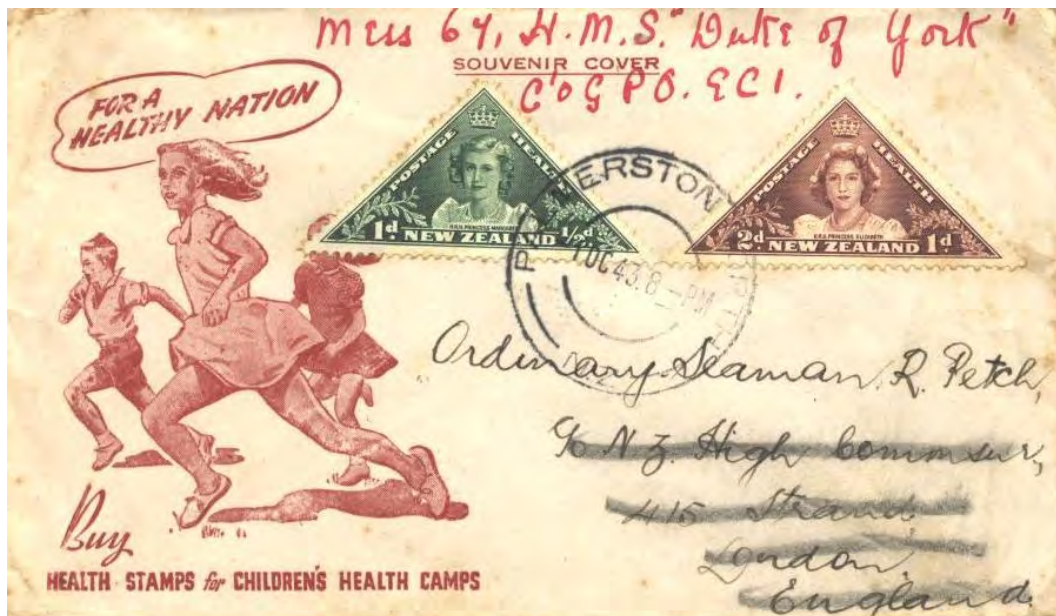 Mess 67, H.M.S. "Duke of York"
SOUVENIR COVER
C/o G P O. E C 1.
FOR A
HEALTHY NATION
POSTAGE HEALTH
H.R.H. PRINCESS MARGARET
1d NEW ZEALAND 1/2d
POSTAGE HEALTH
H.R.H. PRINCESS ELIZABETH
2d NEW ZEALAND 1d
PALMERSTON NORTH
1 OC 43. 8 - PM
N.Z.
Ordinary Seaman, R. Petch,
c/o N.Z. High Commsur,
415 Strand
London,
England.
Buy
HEALTH STAMPS for CHILDREN'S HEALTH CAMPS